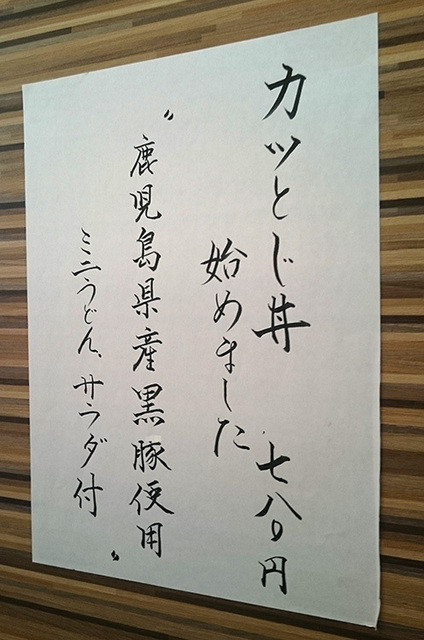 カツとじ丼 七八〇円
始めました
〝鹿児島県産黒豚使用
ミニうどん、サラダ付〟